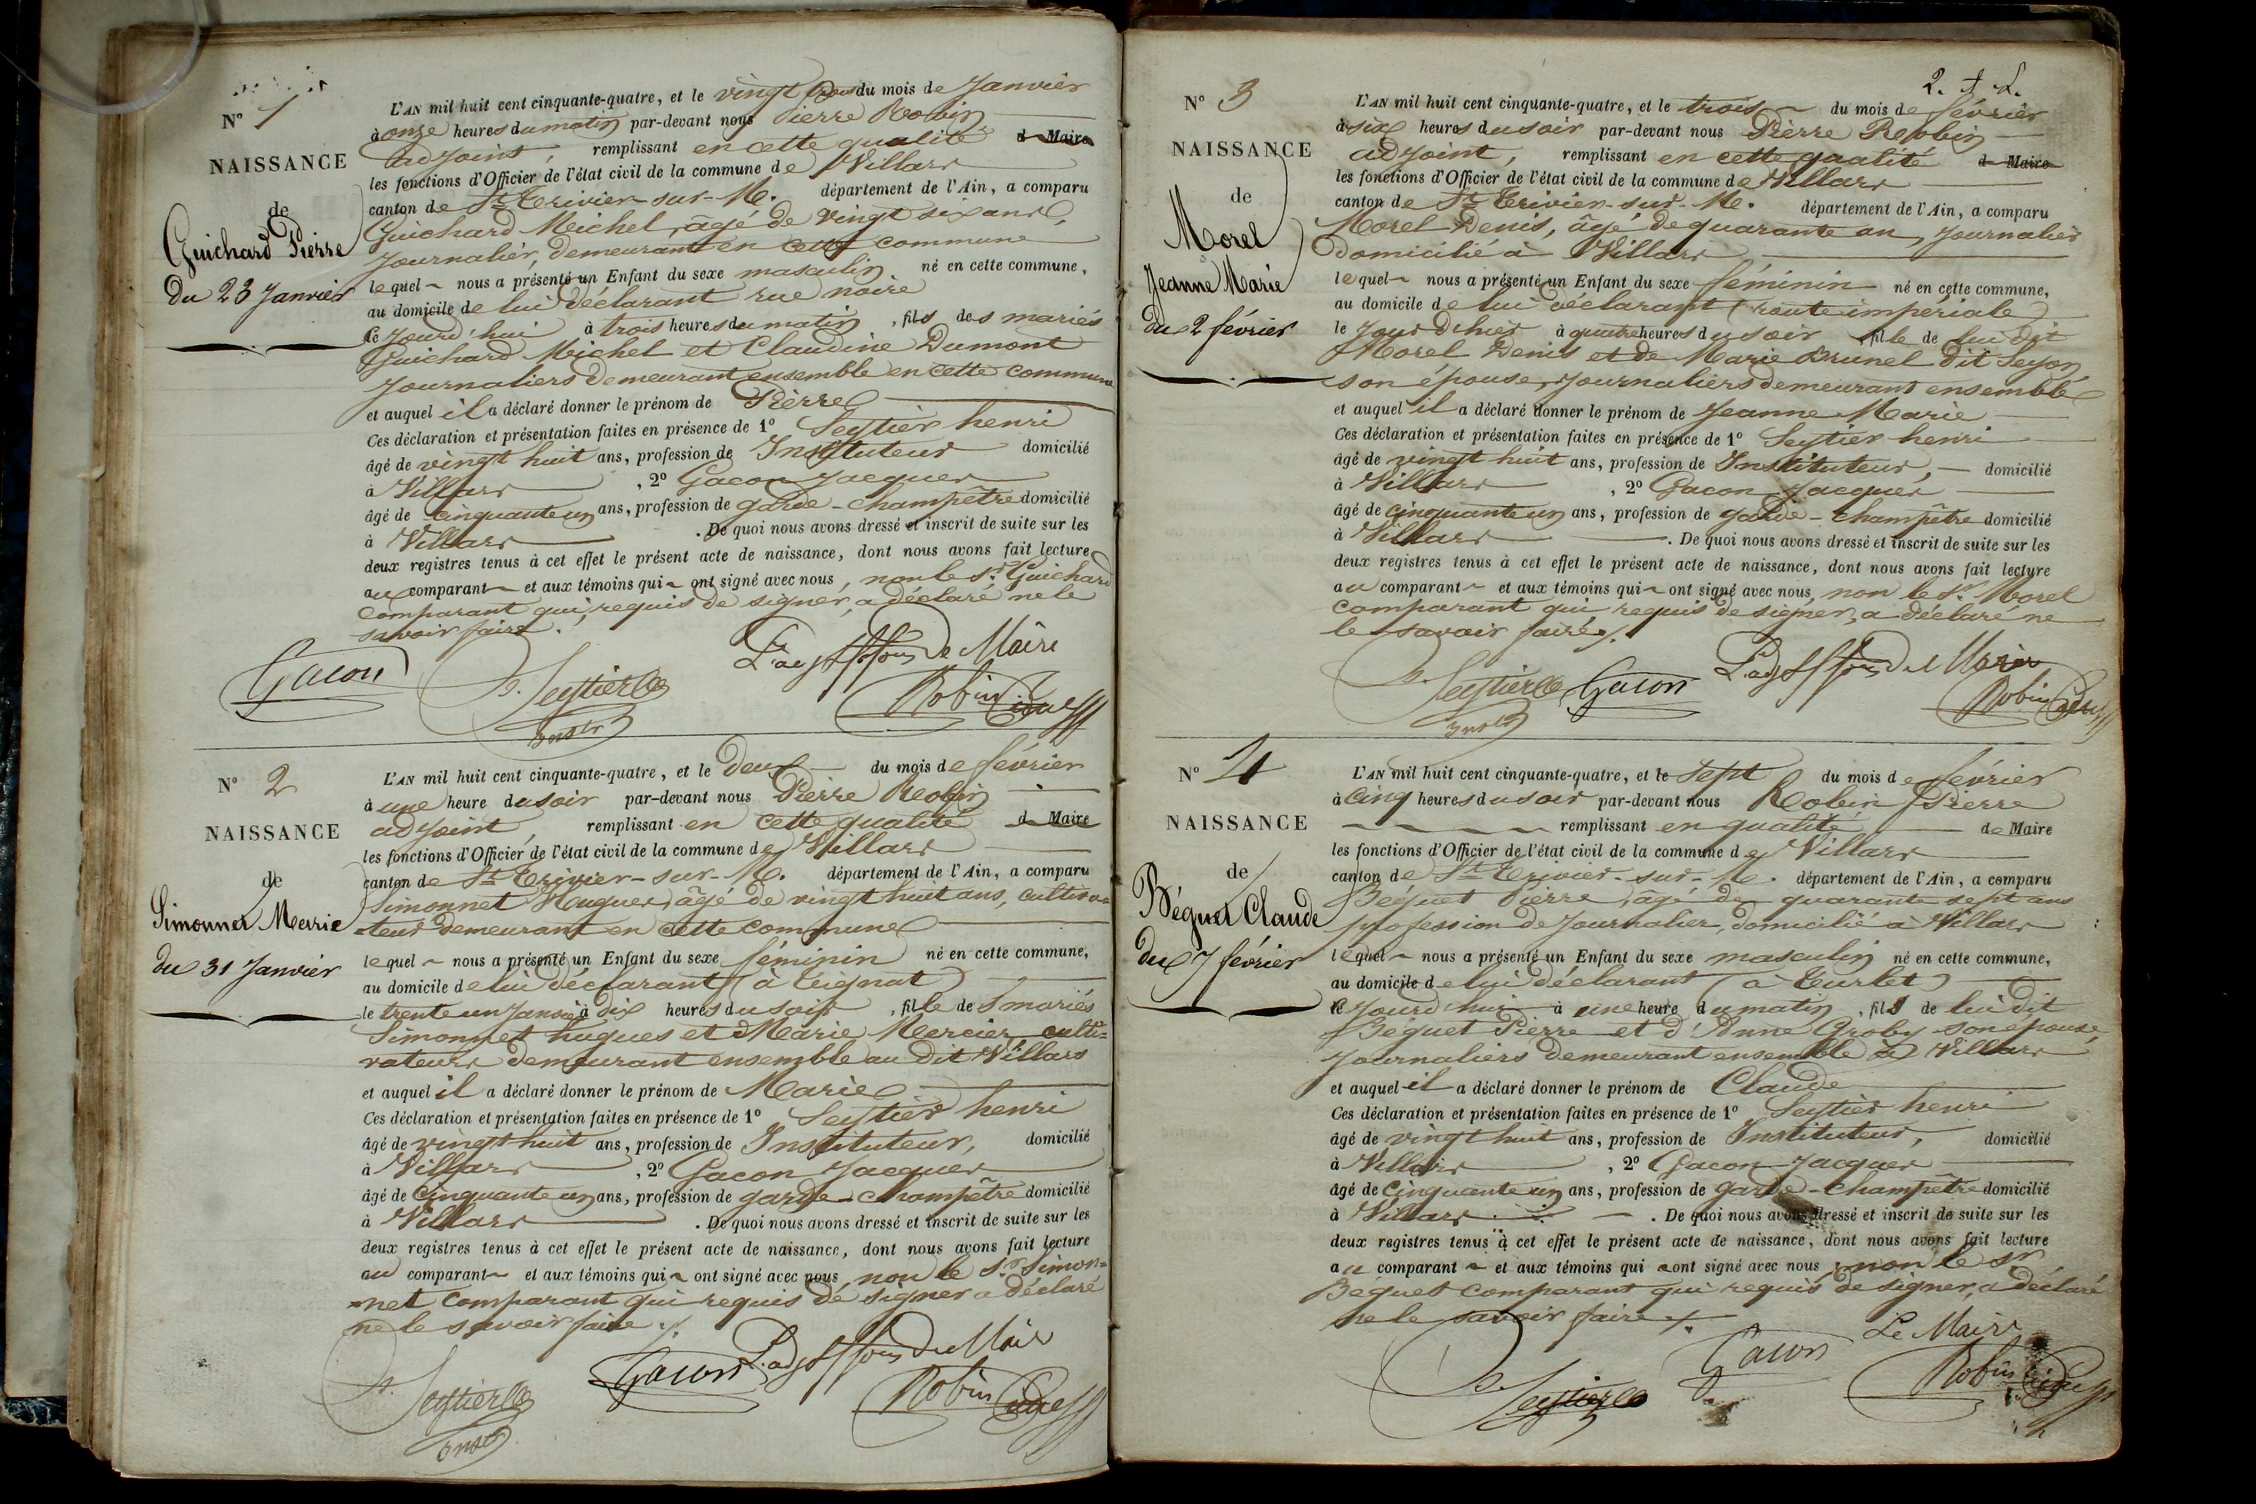 N° 1
NAISSANCE
de
Guichard Pierre
du 23 Janvier
L'AN mil huit cent cinquante-quatre, et le vingt trois du mois de Janvier
à onze heures du matin par-devant nous Pierre Robin
adjoint, remplissant en cette qualité d Maire
les fonctions d'Officier de l'état civil de la commune de Villars
canton de St Trivier-sur-M. département de l'Ain, a comparu
Guichard Michel, âgé de vingt six ans,
Journalier, demeurant en cette commune
lequel nous a présenté un Enfant du sexe masculin né en cette commune,
au domicile de lui déclarant rue noire
le Jourd'hui à trois heures du matin, fils des mariés
Guichard Michel et Claudine Dumont
Journaliers demeurant ensemble en cette commune
et auquel il a déclaré donner le prénom de Pierre
Ces déclaration et présentation faites en présence de 1° Seytier henri
âgé de vingt huit ans, profession de Instituteur domicilié
à Villars, 2° Gacon Jacques
âgé de cinquante un ans, profession de garde-champêtre domicilié
à Villars. De quoi nous avons dressé et inscrit de suite sur les
deux registres tenus à cet effet le présent acte de naissance, dont nous avons fait lecture
au comparant et aux témoins qui ont signé avec nous, non le Sr. Guichard
comparant qui, requis de signer, a déclaré ne le
savoir faire.
L'adj Maire
Gacon Seytier Robin
N° 2
NAISSANCE
de
Simonnet Marie
du 31 Janvier
L'AN mil huit cent cinquante-quatre, et le deux du mois de février
à une heure du soir par-devant nous Pierre Robin
adjoint, remplissant en cette qualité d Maire
les fonctions d'Officier de l'état civil de la commune de Villars
canton de St Trivier-sur-M. département de l'Ain, a comparu
Simonnet Hugues, âgé de vingt huit ans, cultiva-
teur demeurant en cette commune
lequel nous a présenté un Enfant du sexe féminin né en cette commune,
au domicile de lui déclarant (à Teignat)
le trente un Janvier à dix heures du soir, fille de S mariés
Simonnet hugues et Marie Mercier, culti=
vateurs demeurant ensemble au dit Villars
et auquel il a déclaré donner le prénom de Marie
Ces déclaration et présentation faites en présence de 1° Seytier henri
âgé de vingt huit ans, profession de Instituteur, domicilié
à Villars, 2° Gacon Jacques
âgé de cinquante un ans, profession de garde-champêtre domicilié
à Villars. De quoi nous avons dressé et inscrit de suite sur les
deux registres tenus à cet effet le présent acte de naissance, dont nous avons fait lecture
au comparant et aux témoins qui ont signé avec nous, non le Sr. Simon=
=net comparant qui requis de signer a déclaré
ne le savoir faire.
L'adj Maire
Seytier Gacon Robin
N° 3
NAISSANCE
de
Morel
Jeanne Marie
du 2 février
L'AN mil huit cent cinquante-quatre, et le trois du mois de février
à six heures du soir par-devant nous Pierre Robin
adjoint, remplissant en cette qualité d Maire
les fonctions d'Officier de l'état civil de la commune de Villars
canton de St Trivier-sur-M. département de l'Ain, a comparu
Morel Denis, âgé de quarante an, Journalier
domicilié à Villars
lequel nous a présenté un Enfant du sexe féminin né en cette commune,
au domicile de lui déclarant (route impériale)
le Jour d'hier à quatre heures du soir fille de lui dit
Morel Denis et de Marie Brunel dit Seyon
son épouse, Journaliers demeurant ensemble
et auquel il a déclaré donner le prénom de Jeanne Marie
Ces déclaration et présentation faites en présence de 1° Seytier henri
âgé de vingt huit ans, profession de Instituteur, domicilié
à Villars, 2° Gacon Jacques
âgé de cinquante un ans, profession de garde-champêtre domicilié
à Villars. De quoi nous avons dressé et inscrit de suite sur les
deux registres tenus à cet effet le présent acte de naissance, dont nous avons fait lecture
au comparant et aux témoins qui ont signé avec nous, non le Sr. Morel
comparant qui requis de signer, a déclaré ne
le savoir faire.
L'adj Maire
Seytier Gacon Robin
N° 4
NAISSANCE
de
Béguet Claude
du 7 février
L'AN mil huit cent cinquante-quatre, et le sept du mois de février
à cinq heures du soir par-devant nous Robin Pierre
remplissant en qualité de Maire
les fonctions d'Officier de l'état civil de la commune de Villars
canton de St Trivier-sur-M. département de l'Ain, a comparu
Béguet Pierre, âgé de quarante sept ans
profession de Journalier, domicilié à Villars
lequel nous a présenté un Enfant du sexe masculin né en cette commune,
au domicile de lui déclarant (à Turlet)
le Jourd'hui à une heure du matin, fils de lui dit
Béguet Pierre et d'Anne Groby son épouse,
Journaliers demeurant ensemble à Villars
et auquel il a déclaré donner le prénom de Claude
Ces déclaration et présentation faites en présence de 1° Seytier henri
âgé de vingt huit ans, profession de Instituteur, domicilié
à Villars, 2° Gacon Jacques
âgé de cinquante un ans, profession de garde-champêtre domicilié
à Villars. De quoi nous avons dressé et inscrit de suite sur les
deux registres tenus à cet effet le présent acte de naissance, dont nous avons fait lecture
au comparant et aux témoins qui ont signé avec nous, non le Sr
Béguet comparant qui requis de signer, a déclaré
ne le savoir faire.
Le Maire
Seytier Gacon Robin